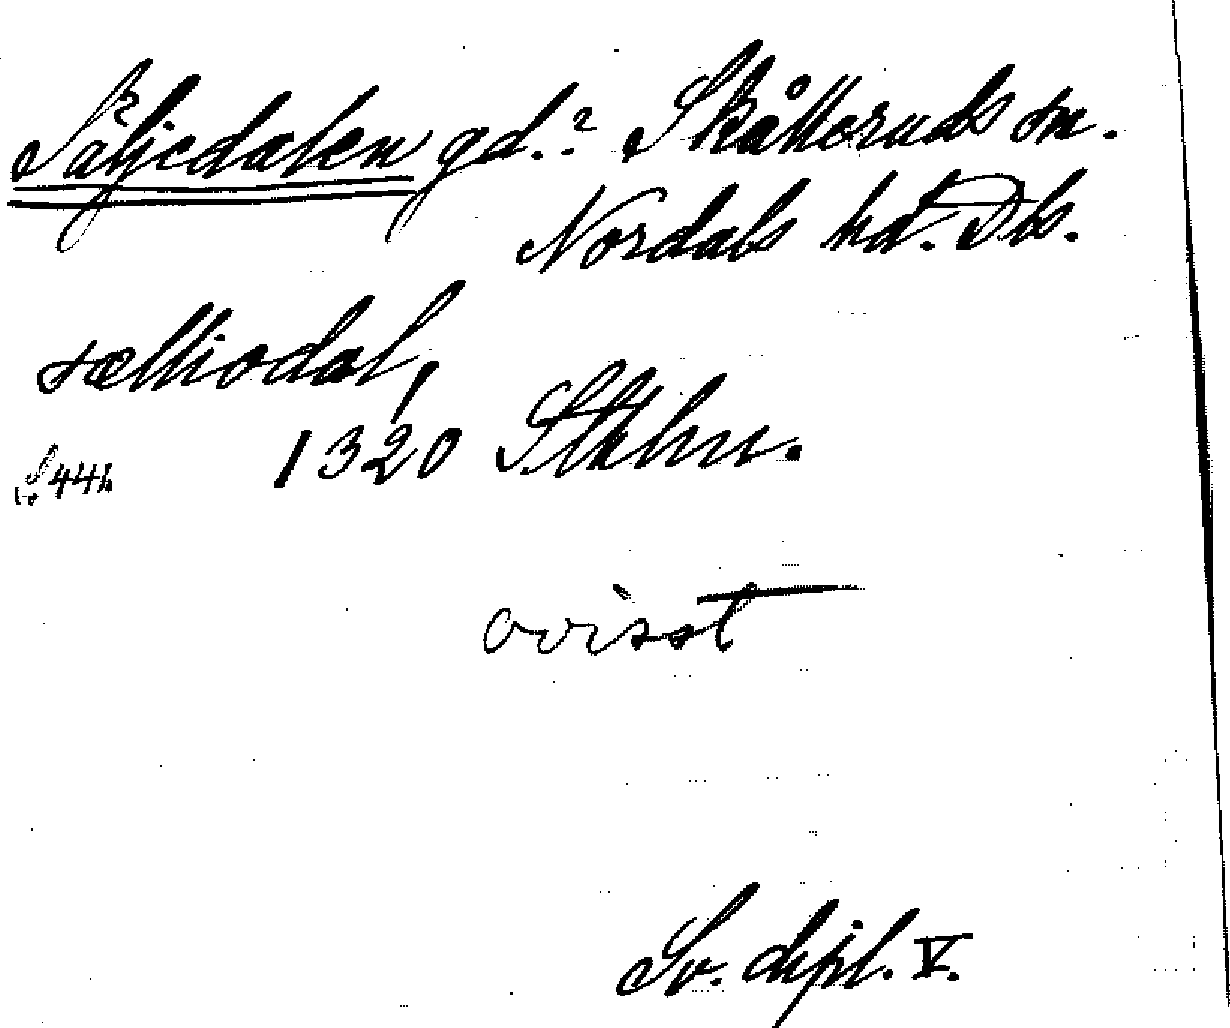 Säljedalen gd.? Skålleruds sn.
Nordals hd. Dls.
sælliodal,
1320 Sthlm.
S. 441.
ovisst
Sv. dipl. V.